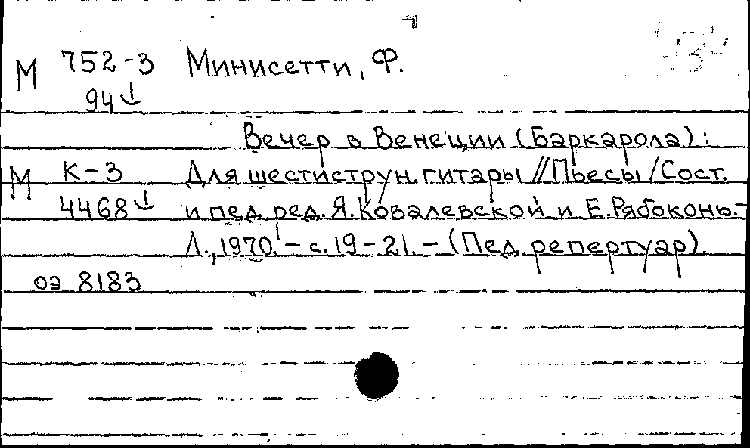 М 752-3 Минисетти, Ф.
94↓
Вечер в Венеции (Баркарола):
М К-3 Для шестиструн. гитары // Пьесы / Сост.
4468↓ и пед. ред. Я. Ковалевской и Е. Рябоконь.-
Л., 1970. - с. 19-21. - (Пед. репертуар)
оэ 8183